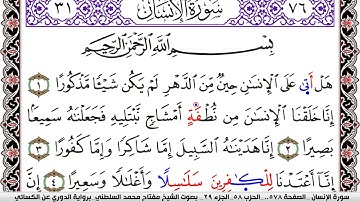 ٧٦ سُورَةُ الإِنسَانِ ٣١
بِسْمِ اللَّهِ الرَّحْمَٰنِ الرَّحِيمِ
هَلْ أَتَىٰ عَلَى الْإِنسَانِ حِينٌ مِّنَ الدَّهْرِ لَمْ يَكُن شَيْئًا مَّذْكُورًا ١
إِنَّا خَلَقْنَا الْإِنسَانَ مِن نُّطْفَةٍ أَمْشَاجٍ نَّبْتَلِيهِ فَجَعَلْنَاهُ سَمِيعًا
بَصِيرًا ٢ إِنَّا هَدَيْنَاهُ السَّبِيلَ إِمَّا شَاكِرًا وَإِمَّا كَفُورًا ٣
إِنَّا أَعْتَدْنَا لِلْكَافِرِينَ سَلَاسِلًا وَأَغْلَالًا وَسَعِيرًا ٤ إِنَّ
سورة الإنسان . الصفحة ٥٧٨ .. الحزب ٥٨ . الجزء ٢٩ . بصوت الشيخ مفتاح محمد السلطني . برواية الدوري عن الكسائي